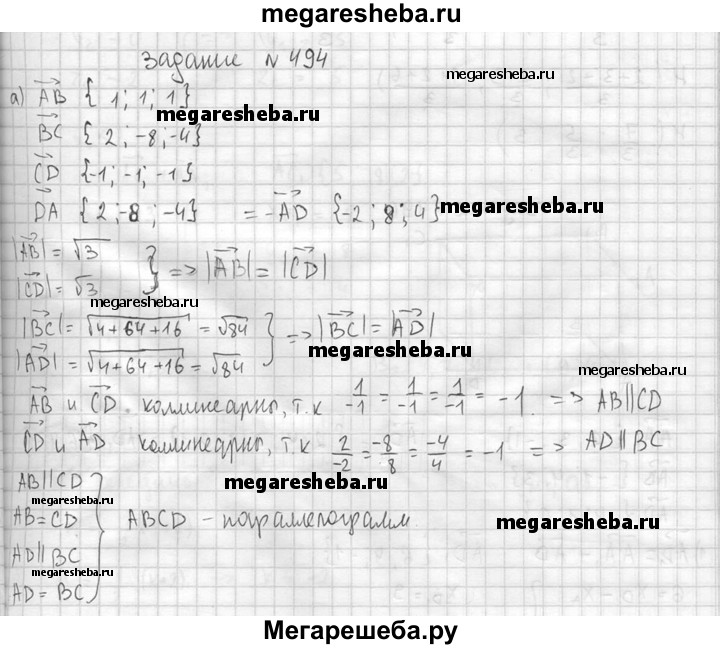 megaresheba.ru
задание № 494
megaresheba.ru
а) AB { 1; 1; 1}
megaresheba.ru
BC { 2; -8; -4}
CD {-1; -1; -1}
DA { 2; -8; -4} = -AD {-2; 8; 4}
megaresheba.ru
|AB| = √3
|CD| = √3 } => |AB| = |CD|
megaresheba.ru
|BC| = √4+64+16 = √84
|AD| = √4+64+16 = √84 } => |BC| = |AD|
megaresheba.ru
megaresheba.ru
AB и CD коллинеарны, т.к 1/-1 = 1/-1 = 1/-1 = -1 => AB||CD
CD и AD коллинеарны, т.к 2/-2 = -8/8 = -4/4 = -1 => AD||BC
megaresheba.ru
AB||CD
megaresheba.ru
AB = CD
ABCD - параллелограмм
megaresheba.ru
AD||BC
megaresheba.ru
AD = BC
Мегарешеба.ру